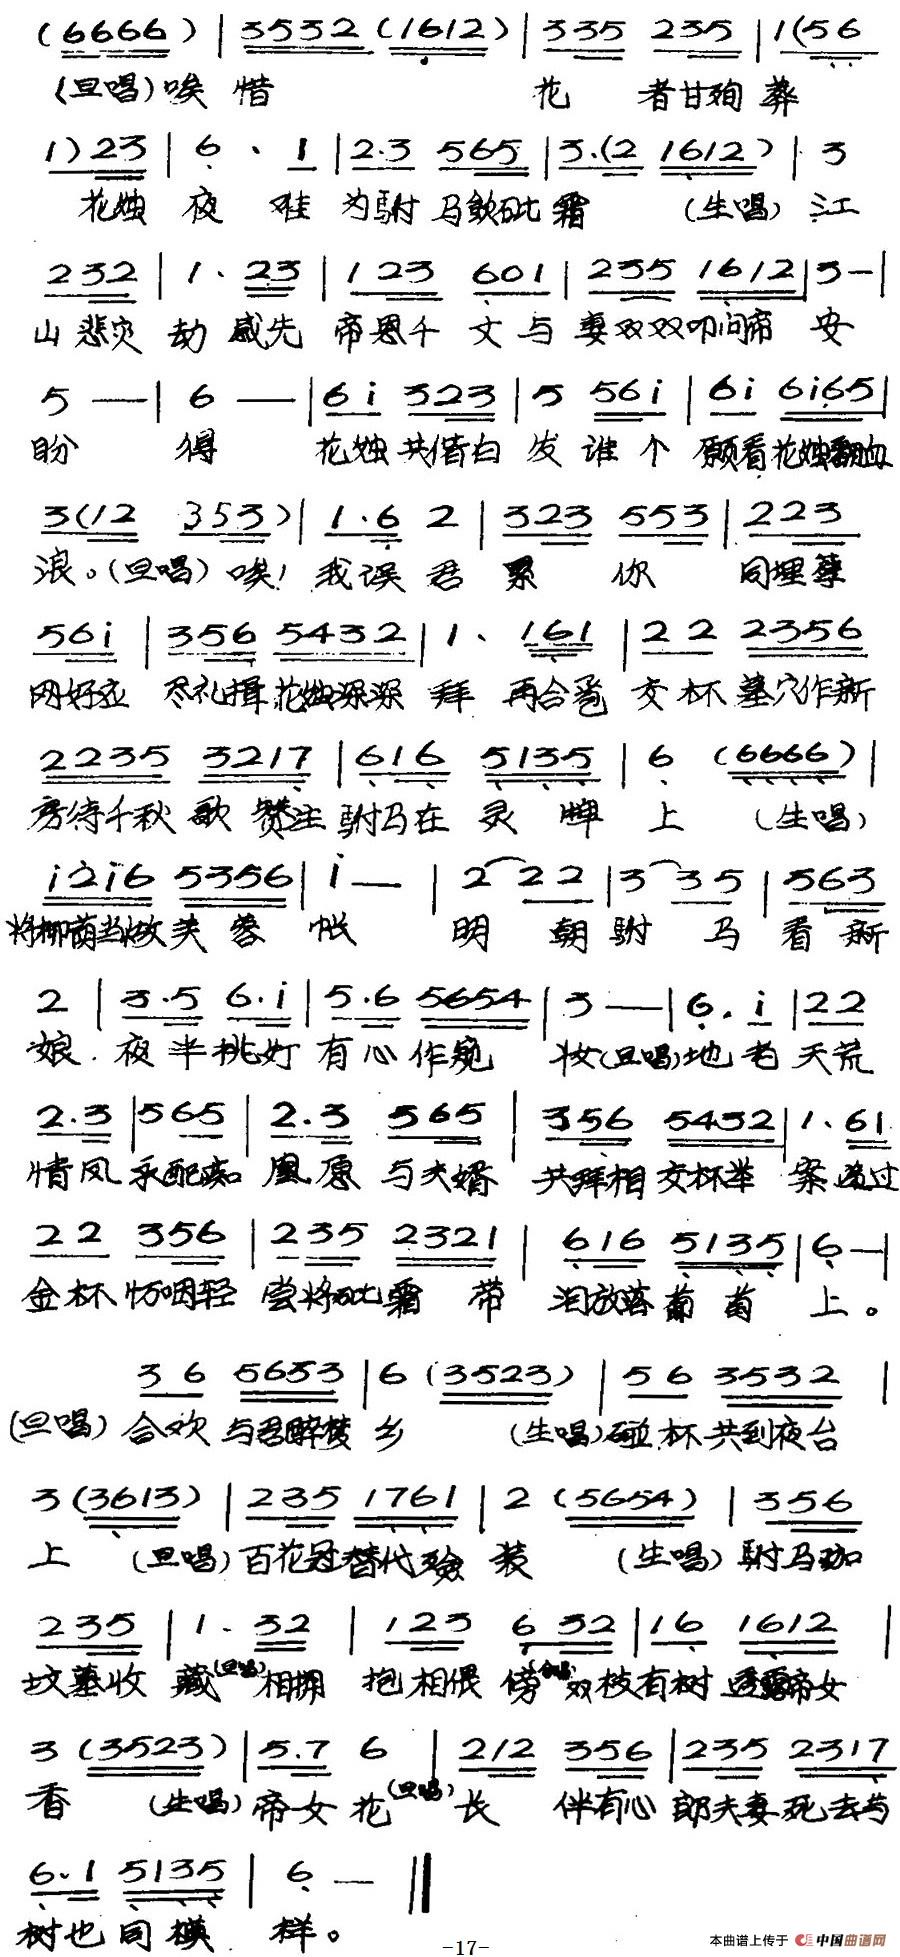 (6666) | 3532 (1612) | 335 235 | 1(56
(旦唱)唉 惜 花 者甘殉葬
1)23 | 6 · 1 | 2·3 565 | 3·(2 1612) | 3
花烛 夜 难 为驸 马饮砒 霜 (生唱) 江
232 | 1 · 23 | 123 601 | 235 1612 | 3 — |
山悲灾 劫 感先 帝恩千 丈与 妻双双叩问帝 安
5 — | 6 — | 6i 323 | 5 56i | 6i 6i65 |
盼 得 花烛共偕白 发谁个 愿看花烛翻血
3(12 353) | 1·6 2 | 323 553 | 223
浪。(旦唱)唉! 我误 君 累 你 同埋孽
56i | 356 5432 | 1 · 161 | 22 2356
网好应 尽礼揖花烛深深 拜 再合卺 交杯墓穴作新
2235 3217 | 616 5135 | 6 (6666) |
房待千秋歌赞注驸马在 灵牌 上 (生唱)
i2i6 5356 | i — | 2 22 | 3 35 | 563
将柳荫当做芙蓉 帐 明 朝 驸 马 看新
2 | 3·5 6·i | 5·6 5654 | 3 — | 6·i | 22
娘 夜半挑灯 有心作窥 妆(旦唱)地老 天荒
2·3 | 565 | 2·3 565 | 356 5432 | 1·61
情凤 永配痴 凰愿 与夫婿 共拜相交杯举 案递过
22 356 | 235 2321 | 616 5135 | 6 — |
金杯 慌咽轻 尝将砒霜 带 泪放落葡萄 上。
36 5653 | 6 (3523) | 56 3532 |
(旦唱) 合欢 与君醉梦 乡 (生唱)碰杯共到夜台
3 (3613) | 235 1761 | 2 (5654) | 356
上 (旦唱)百花冠替代殓 装 (生唱) 驸马珈
235 | 1 · 32 | 123 6 32 | 16 1612 |
坟墓收 藏(旦唱)相拥 抱相偎 傍 双枝有树 透露帝女
3 (3523) | 5·7 6 | 212 356 | 235 2317
香 (生唱) 帝女花(旦唱) 长 伴有心 郎夫妻死去与
6·1 5135 | 6 — ‖
树也同模 样。
-17-
本曲谱上传于 中国曲谱网